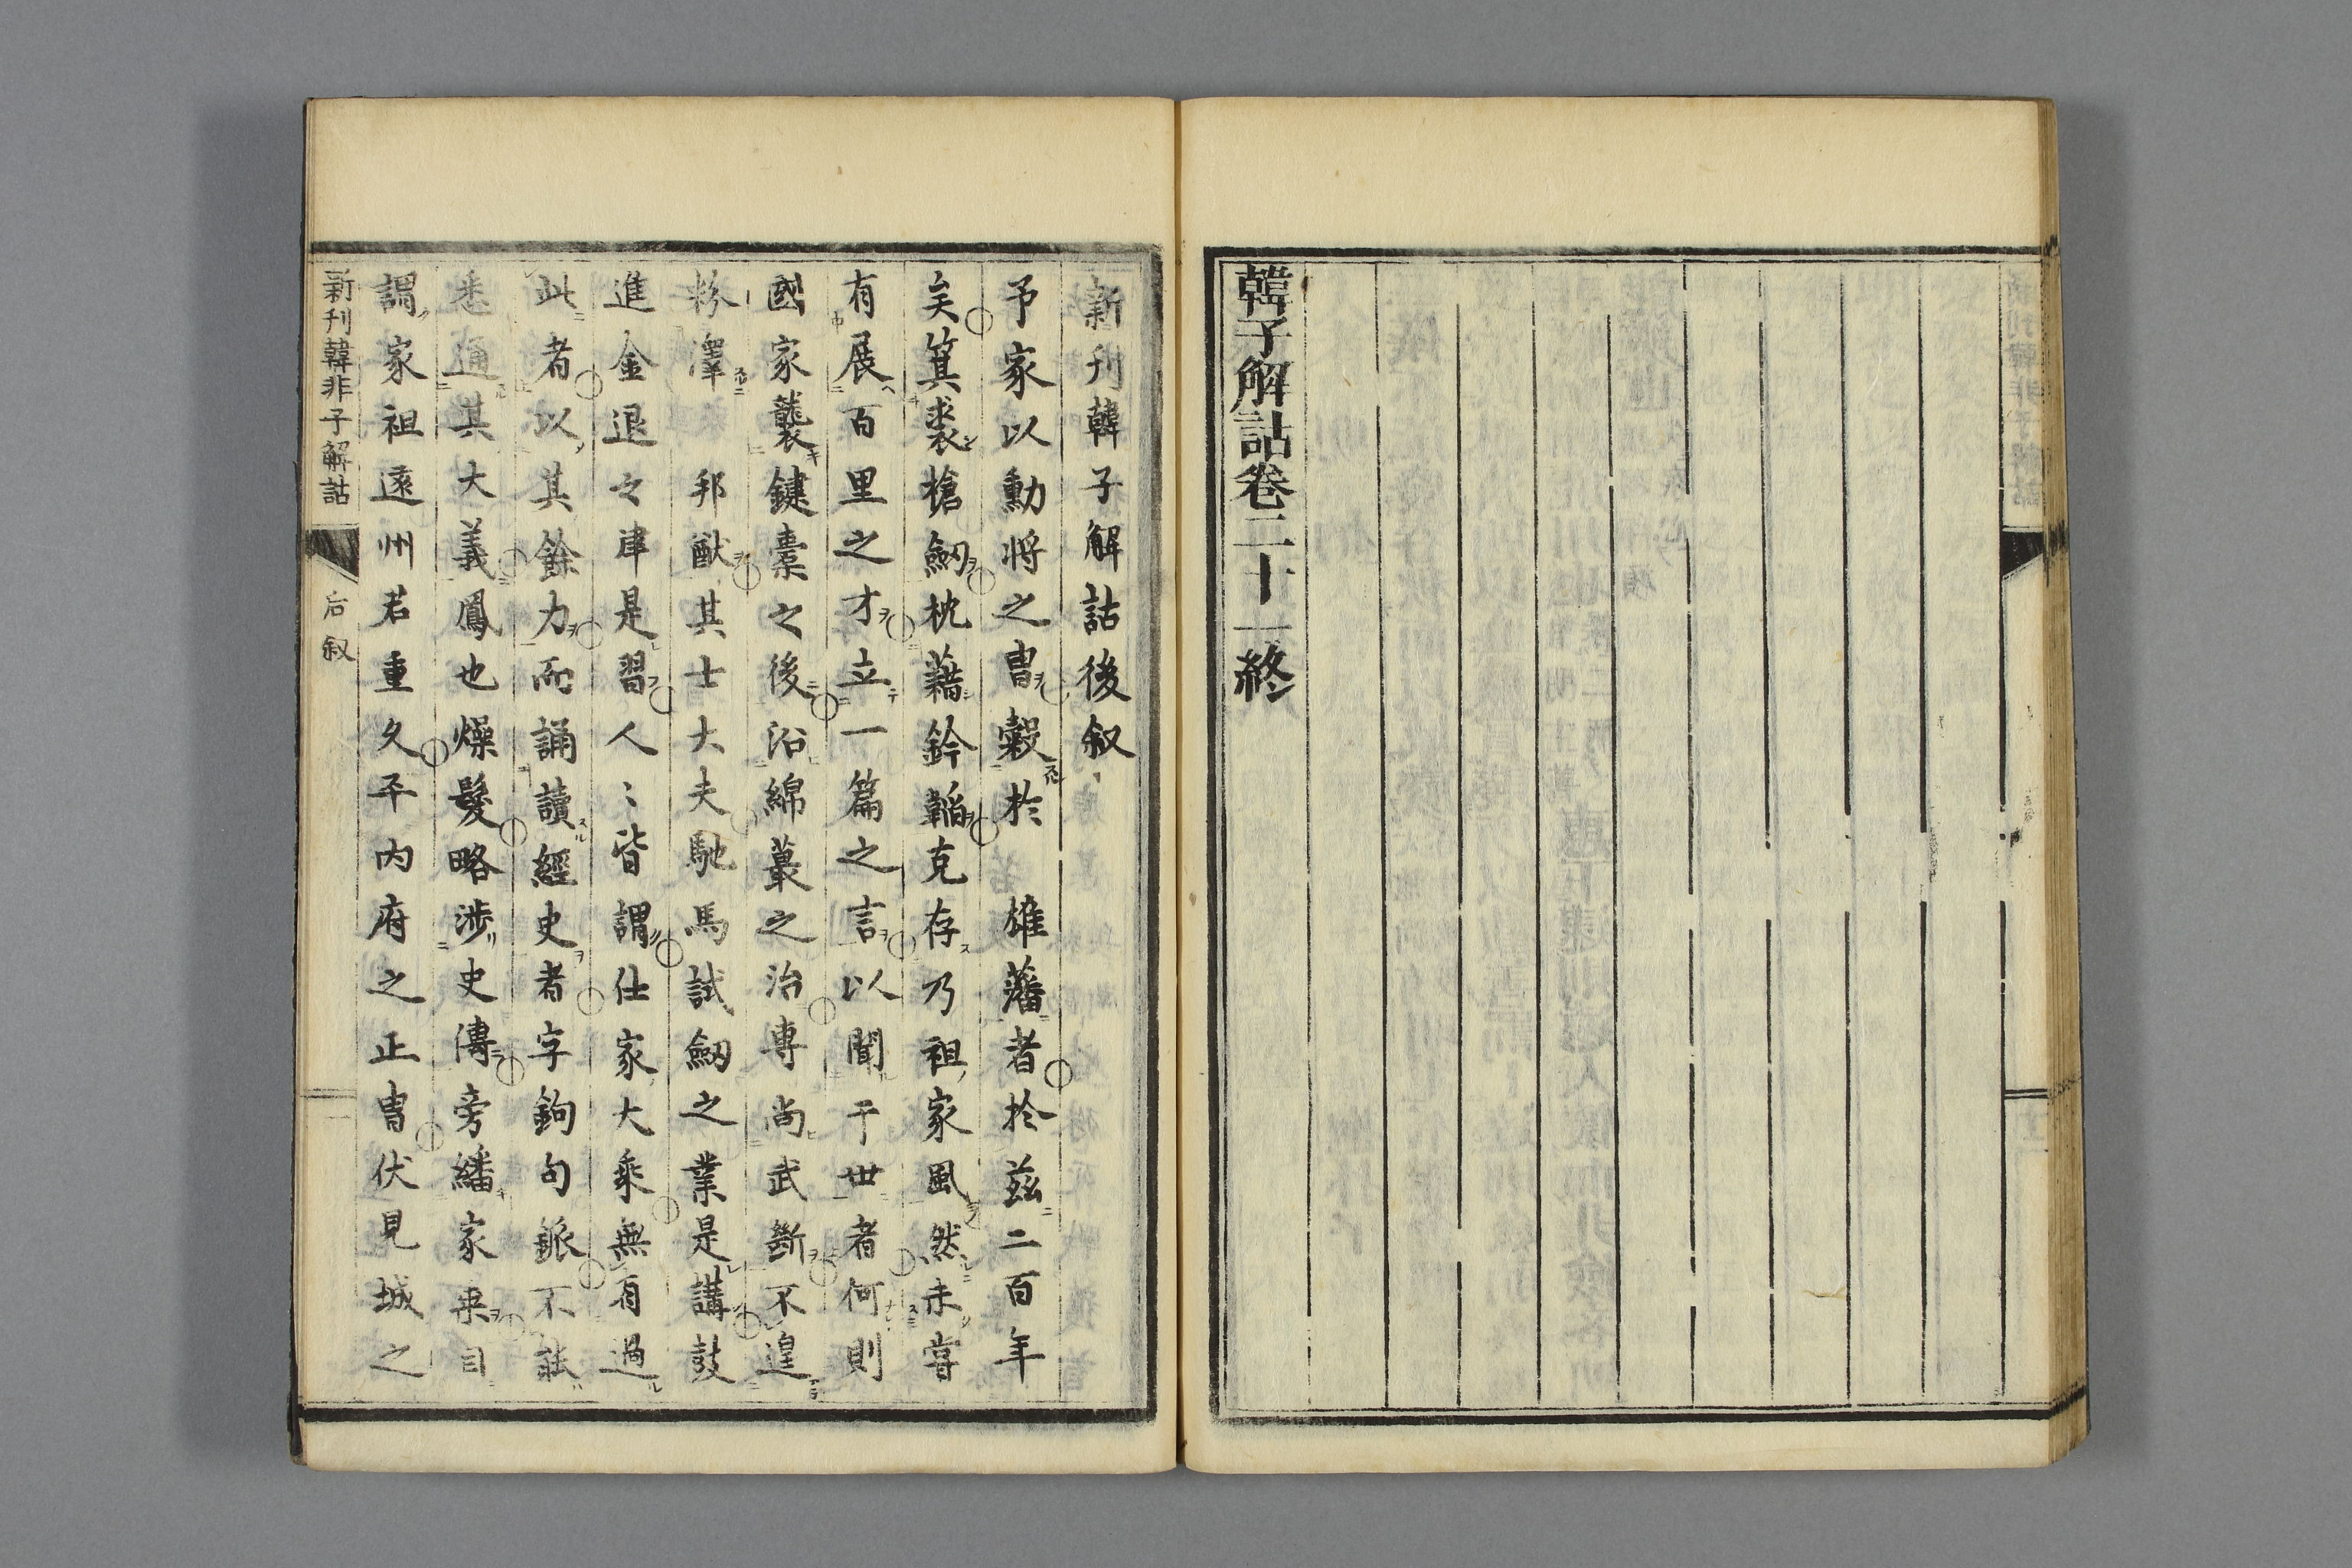 韓子解詁卷二十一終
新刊韓子解詁後叙
予家以勳將之冑穀於　雄藩者於茲二百年
矣箕裘槍劔枕藉鈐韜克存乃祖家風然未甞
有展百里之才立一篇之言以聞于世者何則
國家襲鍵櫜之後沿綿蕞之治專尚武斷不遑
粉澤　邦猷其士大夫馳馬試劔之業是講鼓
進金退之律是習人〻皆謂仕家大乘無有過
此者以其餘力而誦讀經史者字鉤句鈲不能
悉通其大義鳳也燥髮略涉史傳旁繙家乘目
謂家祖遠州若重久平內府之正冑伏見城之
新刊韓非子解詁　后叙　一